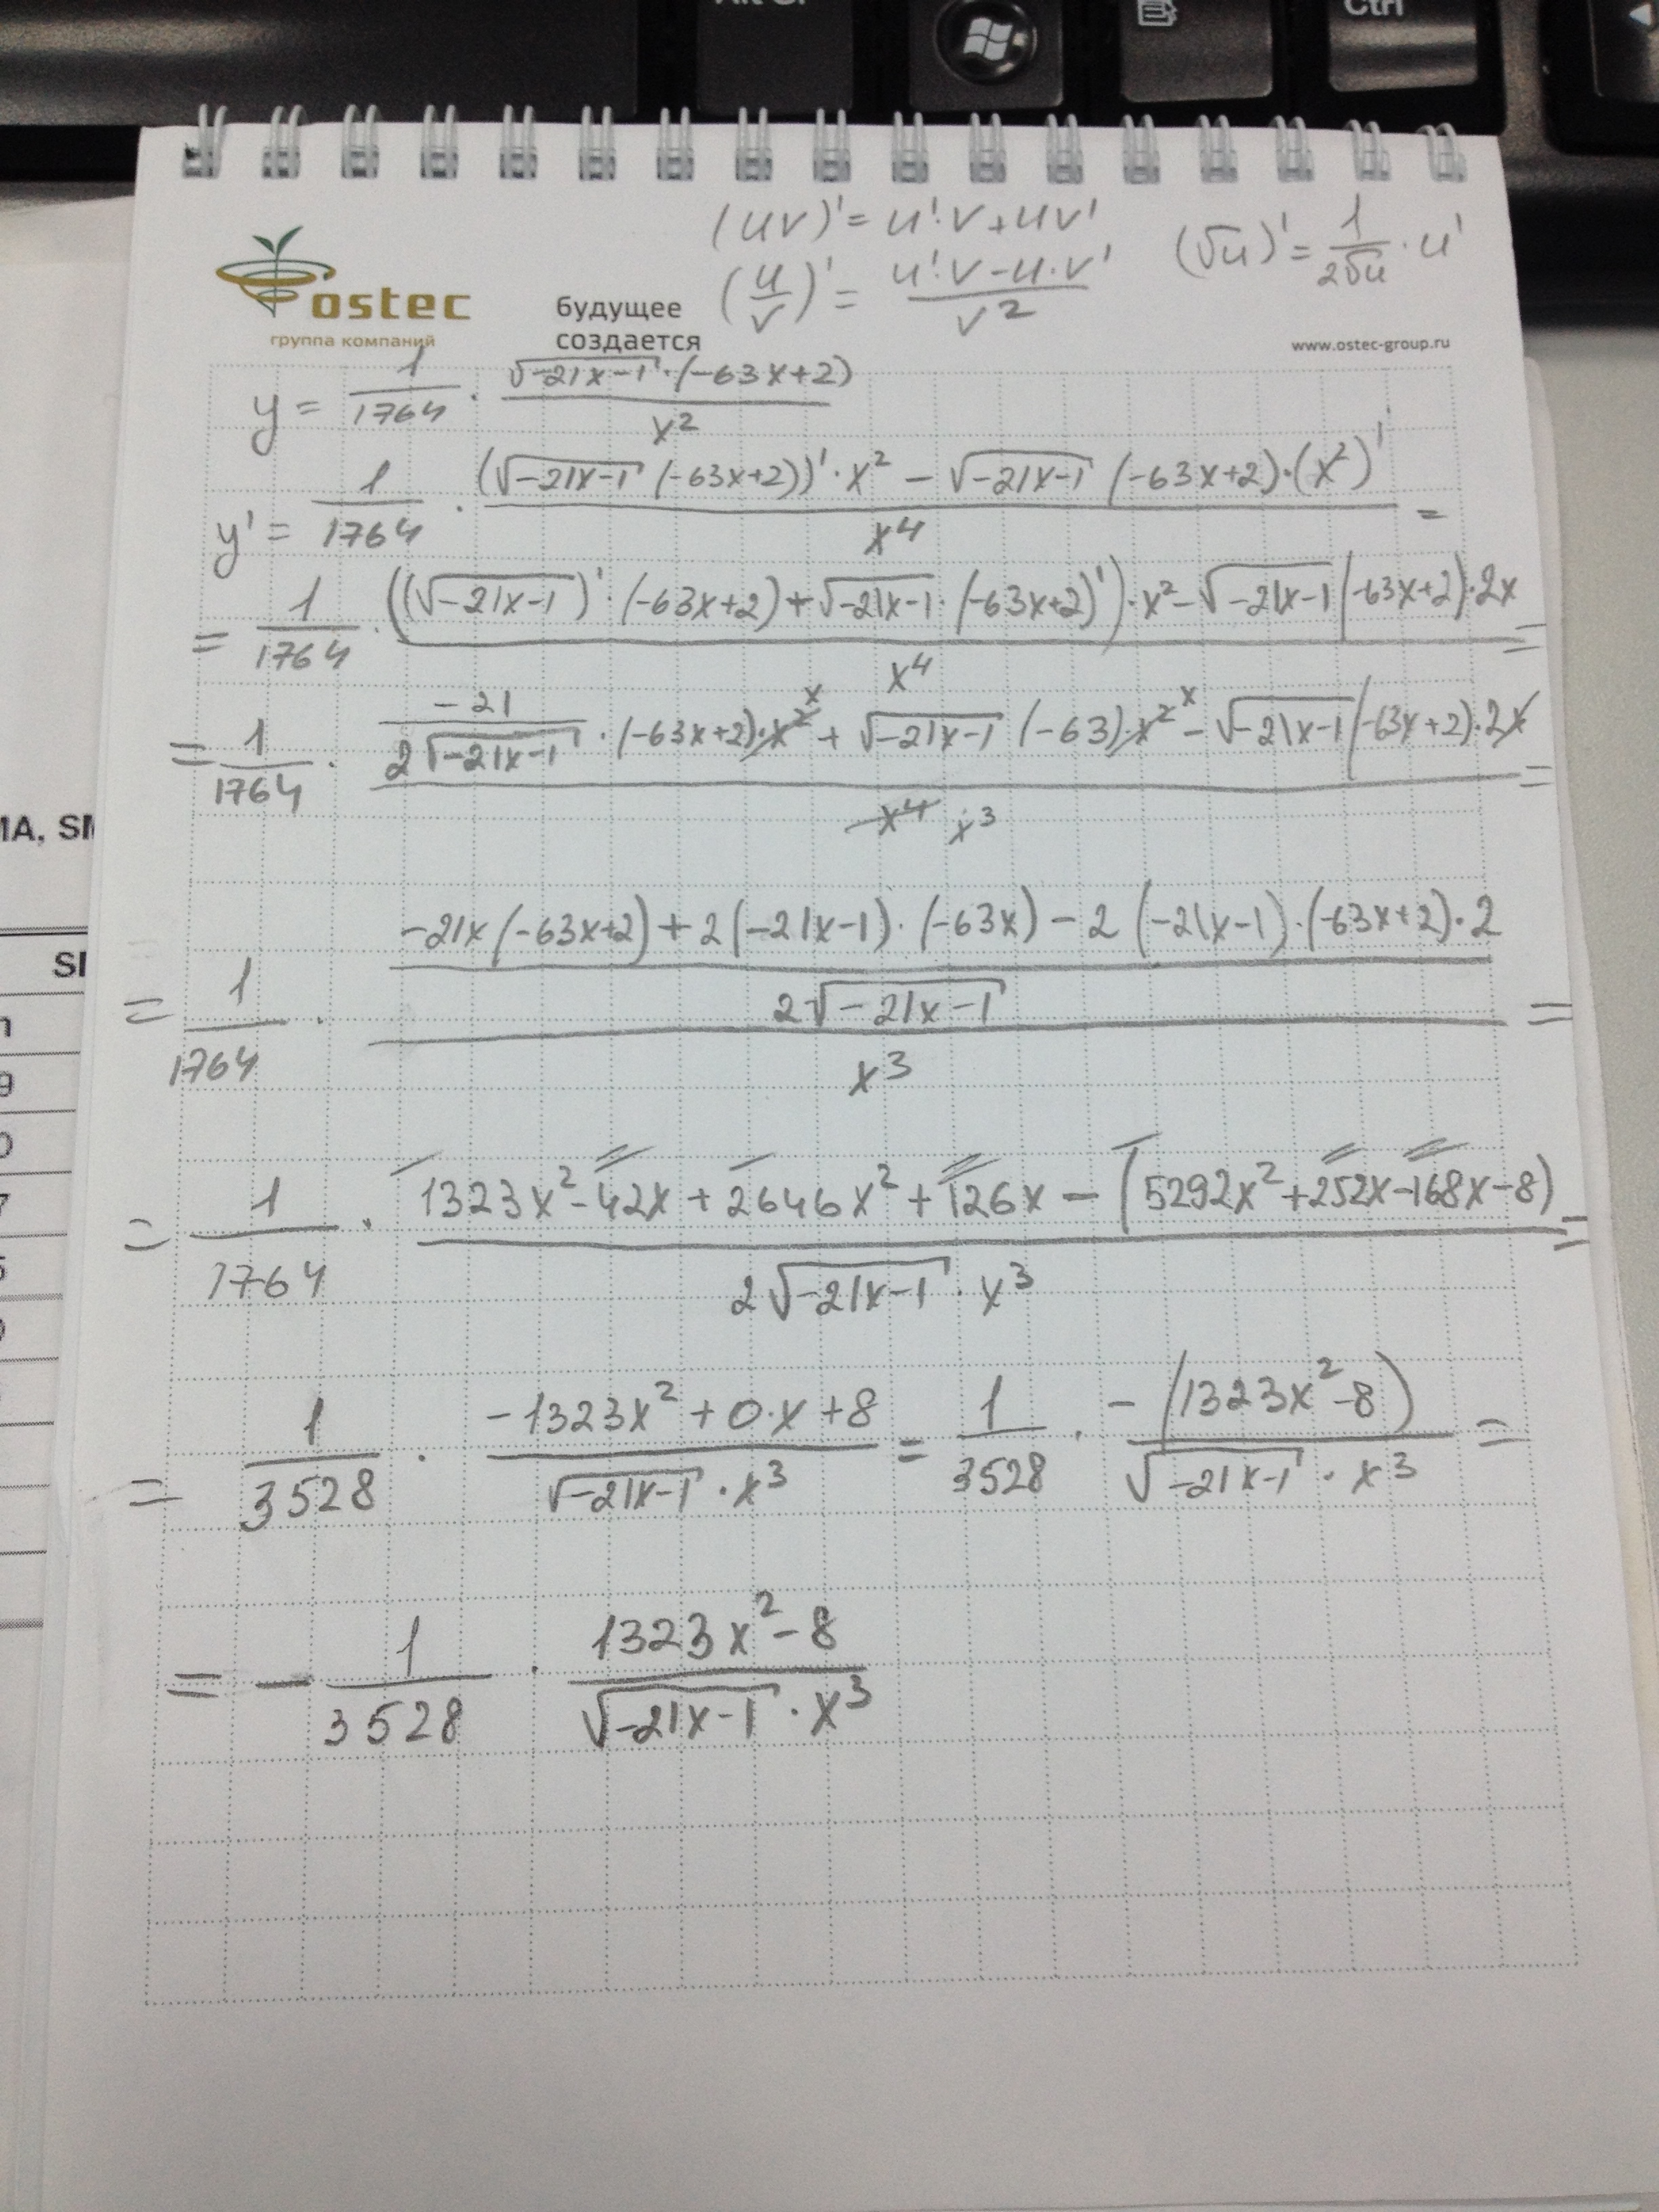 Alt Gr
Ctrl
(uv)' = u'·v + uv'
(√u)' = 1/(2√u) · u'
(u/v)' = (u'·v - u·v')/v²
ostec
группа компаний
будущее
создается
www.ostec-group.ru
y = 1/1764 · √(-21x-1)·(-63x+2) / x²
y' = 1/1764 · ((√(-21x-1) (-63x+2))'·x² - √(-21x-1) (-63x+2)·(x²)') / x⁴ =
= 1/1764 · (((√(-21x-1))'·(-63x+2) + √(-21x-1)·(-63x+2)')·x² - √(-21x-1) (-63x+2)·2x) / x⁴ =
= 1/1764 · (-21/(2√(-21x-1)) · (-63x+2)·x² x + √(-21x-1) (-63)·x² x - √(-21x-1) (-63x+2)·2x) / x⁴ x³ =
= 1/1764 · ((-21x(-63x+2) + 2(-21x-1)·(-63x) - 2(-21x-1)·(-63x+2)·2) / (2√(-21x-1))) / x³ =
= 1/1764 · (1323x² - 42x + 2646x² + 126x - (5292x² + 252x - 168x - 8)) / (2√(-21x-1) · x³) =
= 1/3528 · (-1323x² + 0·x + 8) / (√(-21x-1) · x³) = 1/3528 · -(1323x² - 8) / (√(-21x-1) · x³) =
= - 1/3528 · (1323x² - 8) / (√(-21x-1) · x³)